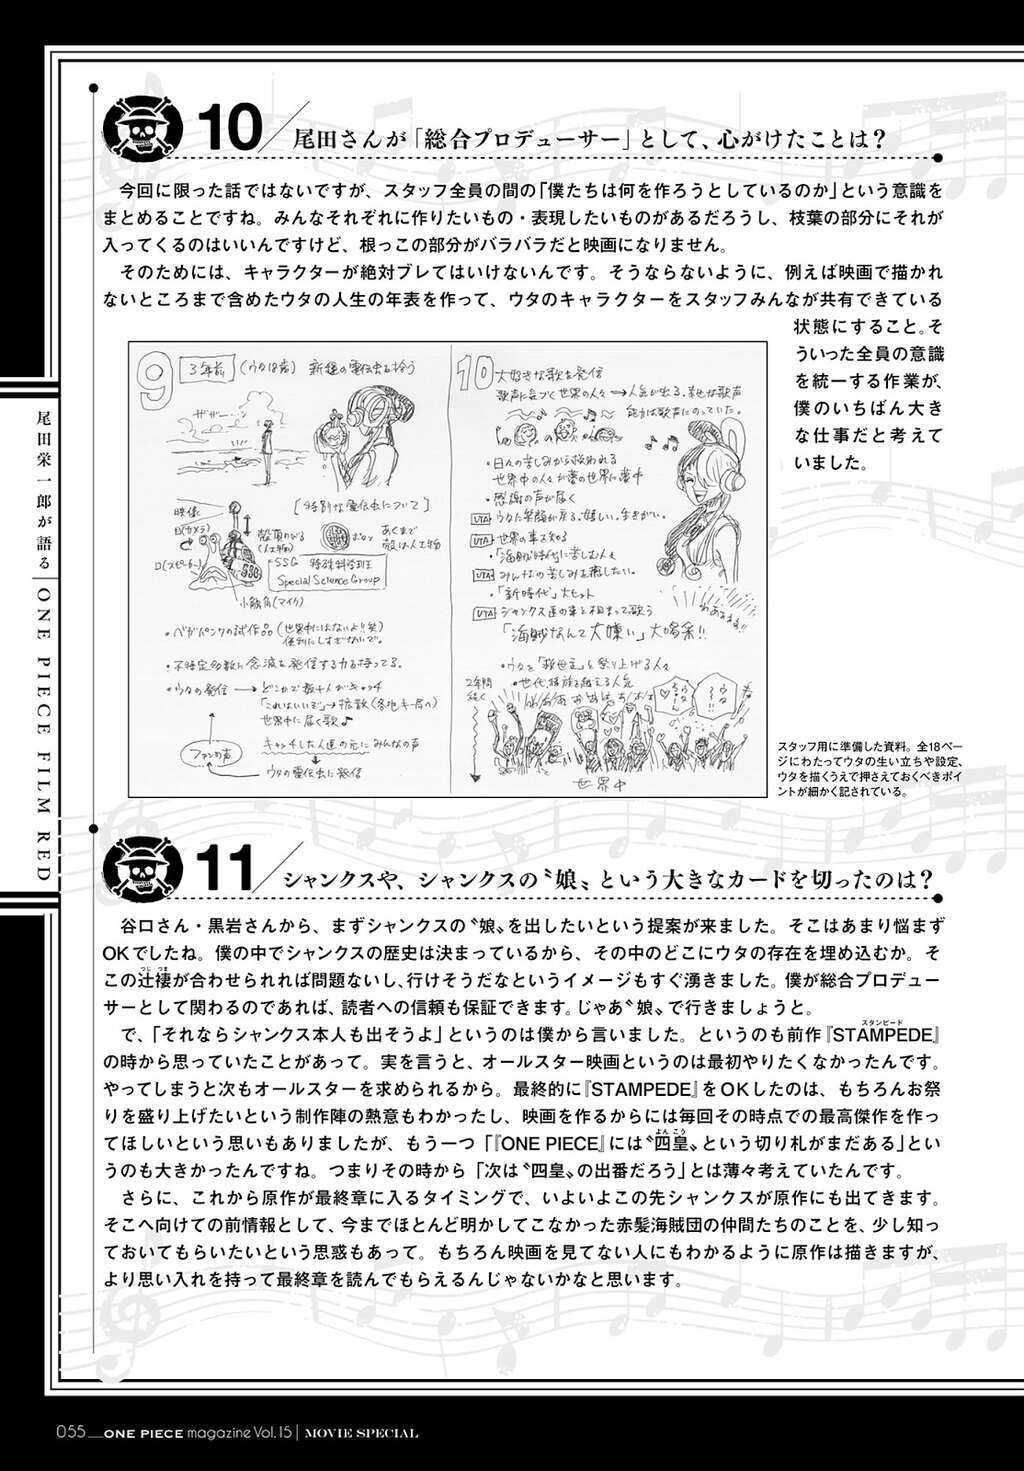 10 尾田さんが「総合プロデューサー」として、心がけたことは？
今回に限った話ではないですが、スタッフ全員の間の「僕たちは何を作ろうとしているのか」という意識を
まとめることですね。みんなそれぞれに作りたいもの・表現したいものがあるだろうし、枝葉の部分にそれが
入ってくるのはいいんですけど、根っこの部分がバラバラだと映画になりません。
そのためには、キャラクターが絶対ブレてはいけないんです。そうならないように、例えば映画で描かれ
ないところまで含めたウタの人生の年表を作って、ウタのキャラクターをスタッフみんなが共有できている
状態にすること。そ
ういった全員の意識
を統一する作業が、
僕のいちばん大き
な仕事だと考えて
いました。
9 3年前 (ウタ18歳) 新種の電伝虫を拾う
ザザー…ン
[特別な電伝虫について]
映像
目(カメラ)
口(スピーカー)
小触角(マイク)
殻頭のびる
(人工物)
ボタン
あくまで
殻は人工物
SSG 特殊科学班
Special Science Group
・ベガパンクの試作品(世界中にはないよ!!笑)
便利にしすぎないで。
・不特定多数に念波を発信する力を持ってる。
・ウタの発信→どこかで数十人がキャッチ
「これはいいぞ」→拡散(各地キー局へ)
世界中に届く歌♪
ファンの声
キャッチした人達の元にみんなの声
→ウタの電伝虫に発信
10 大好きな歌を発信
歌声に気づく世界の人々→人気が出る。幸せな歌声
能力は歌声にのっていた。
・日々の苦しみから救われる
世界中の人々が夢の世界に夢中
・感謝の声が届く
UTA ウタに笑顔が戻る。嬉しい。生きがい。
UTA 世界の事を知る
・「海賊時代に苦しむ人々」
UTA みんなの苦しみを癒したい。
・「新時代」大ヒット
UTA シャンクス達の事と相まって歌う
「海賊なんて大嫌い」大喝采!!
わあぁぁ!!
・ウタを「救世主」と祭り上げる人々
・世代種族を越える人気
2年間
続く
世界中
スタッフ用に準備した資料。全18ペー
ジにわたってウタの生い立ちや設定、
ウタを描くうえで押さえておくべきポイ
ントが細かく記されている。
11 シャンクスや、シャンクスの〝娘〟という大きなカードを切ったのは？
谷口さん・黒岩さんから、まずシャンクスの〝娘〟を出したいという提案が来ました。そこはあまり悩まず
OKでしたね。僕の中でシャンクスの歴史は決まっているから、その中のどこにウタの存在を埋め込むか。そ
つじ つま
この辻褄が合わせられれば問題ないし、行けそうだなというイメージもすぐ湧きました。僕が総合プロデュー
サーとして関わるのであれば、読者への信頼も保証できます。じゃあ〝娘〟で行きましょうと。
スタンピード
で、「それならシャンクス本人も出そうよ」というのは僕から言いました。というのも前作『STAMPEDE』
の時から思っていたことがあって。実を言うと、オールスター映画というのは最初やりたくなかったんです。
やってしまうと次もオールスターを求められるから。最終的に『STAMPEDE』をOKしたのは、もちろんお祭
りを盛り上げたいという制作陣の熱意もわかったし、映画を作るからには毎回その時点での最高傑作を作っ
よん こう
てほしいという思いもありましたが、もう一つ「『ONE PIECE』には〝四皇〟という切り札がまだある」とい
うのも大きかったんですね。つまりその時から「次は〝四皇〟の出番だろう」とは薄々考えていたんです。
さらに、これから原作が最終章に入るタイミングで、いよいよこの先シャンクスが原作にも出てきます。
そこへ向けての前情報として、今までほとんど明かしてこなかった赤髪海賊団の仲間たちのことを、少し知っ
ておいてもらいたいという思惑もあって。もちろん映画を見てない人にもわかるように原作は描きますが、
より思い入れを持って最終章を読んでもらえるんじゃないかなと思います。
尾田栄一郎が語る | ONE PIECE FILM RED
055__ONE PIECE magazine Vol.15 | MOVIE SPECIAL